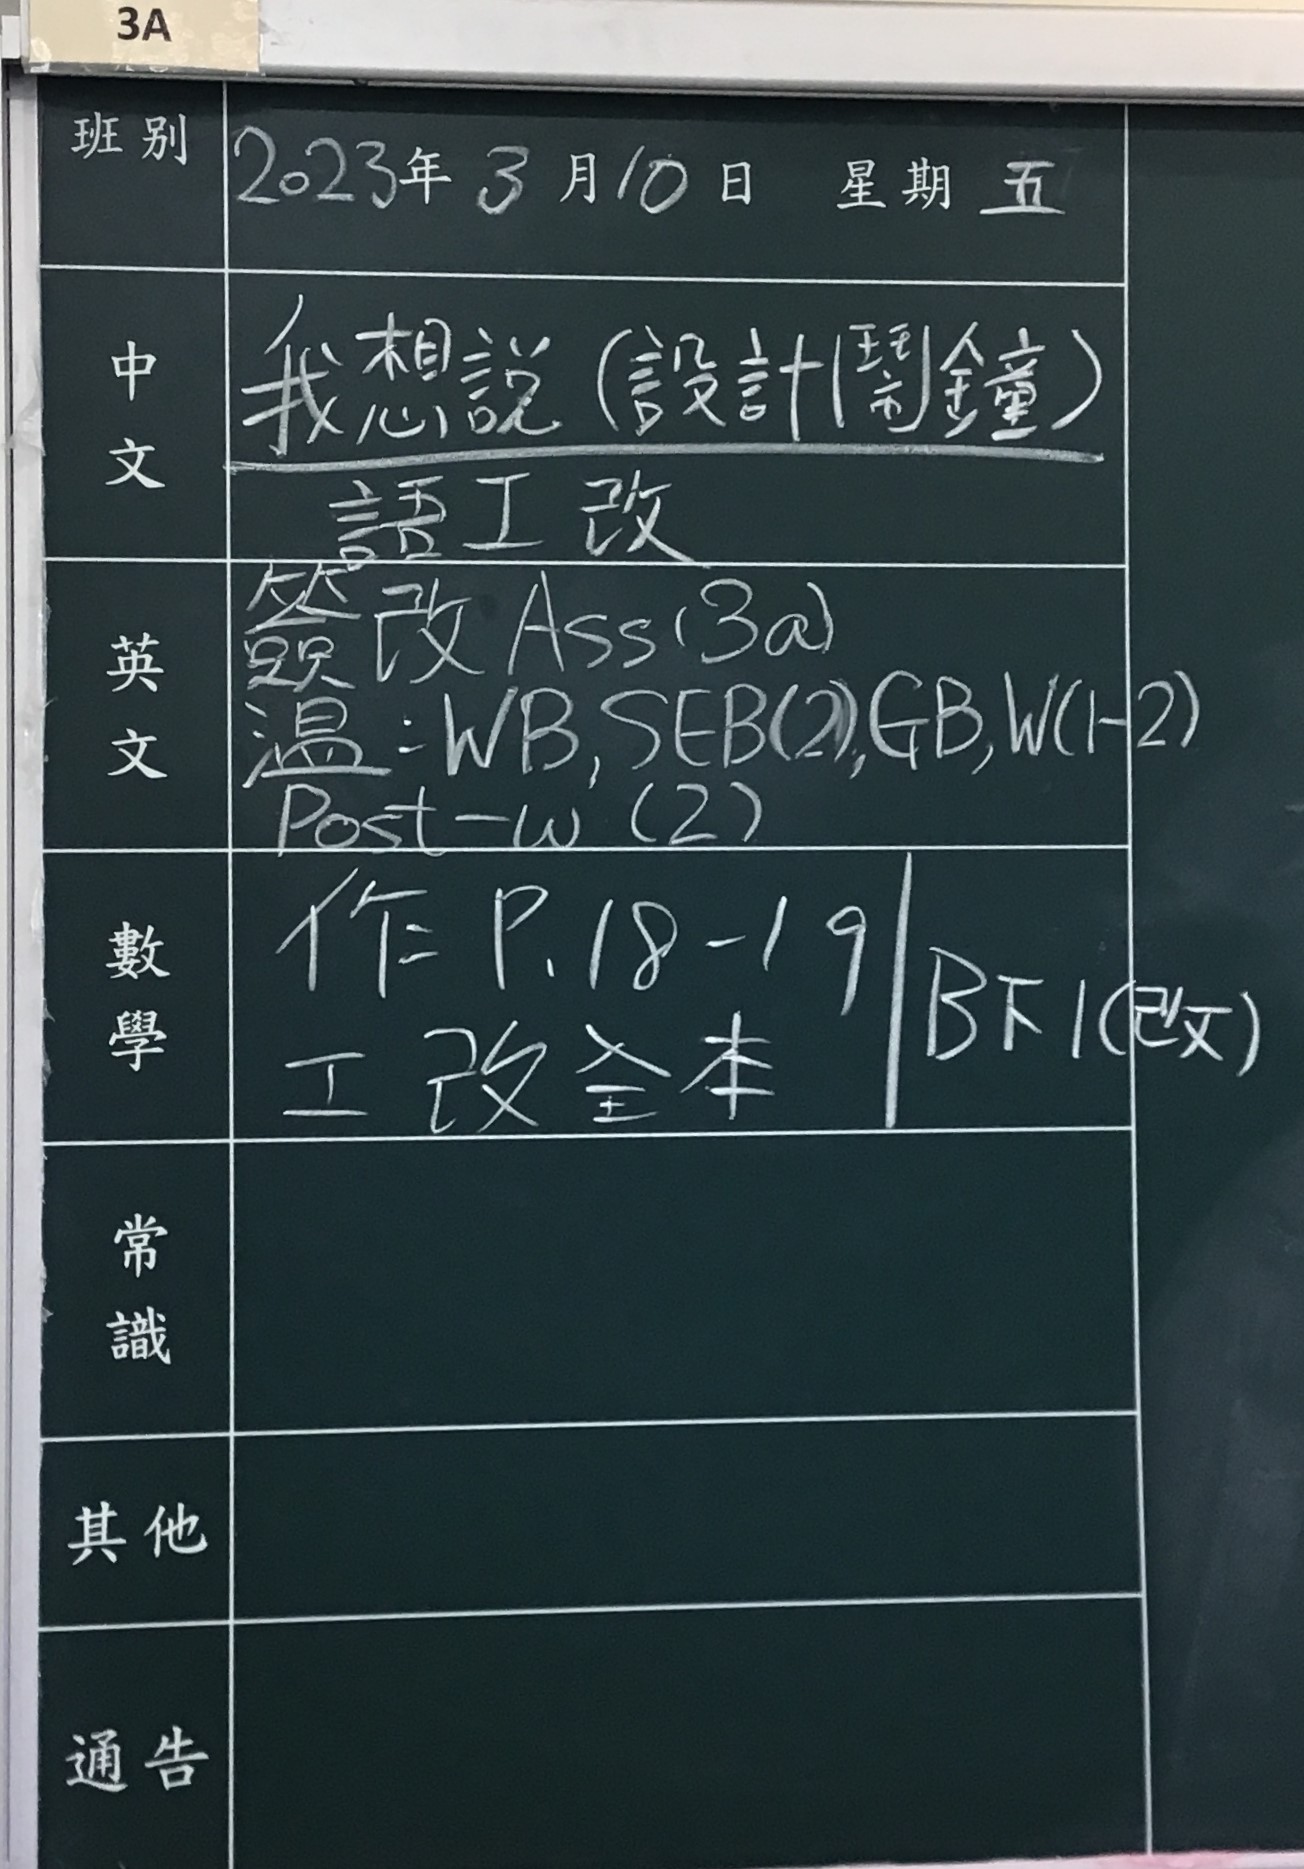 3A
班別 2023年3月10日 星期五
中文
我想說(設計鬧鐘)
語工改
英文
簽改 Ass(3a)
溫:WB, SEB(2), GB, W(1-2)
Post-w (2)
數學
作 P.18-19
工改全本
B下1(改文)
常識
其他
通告